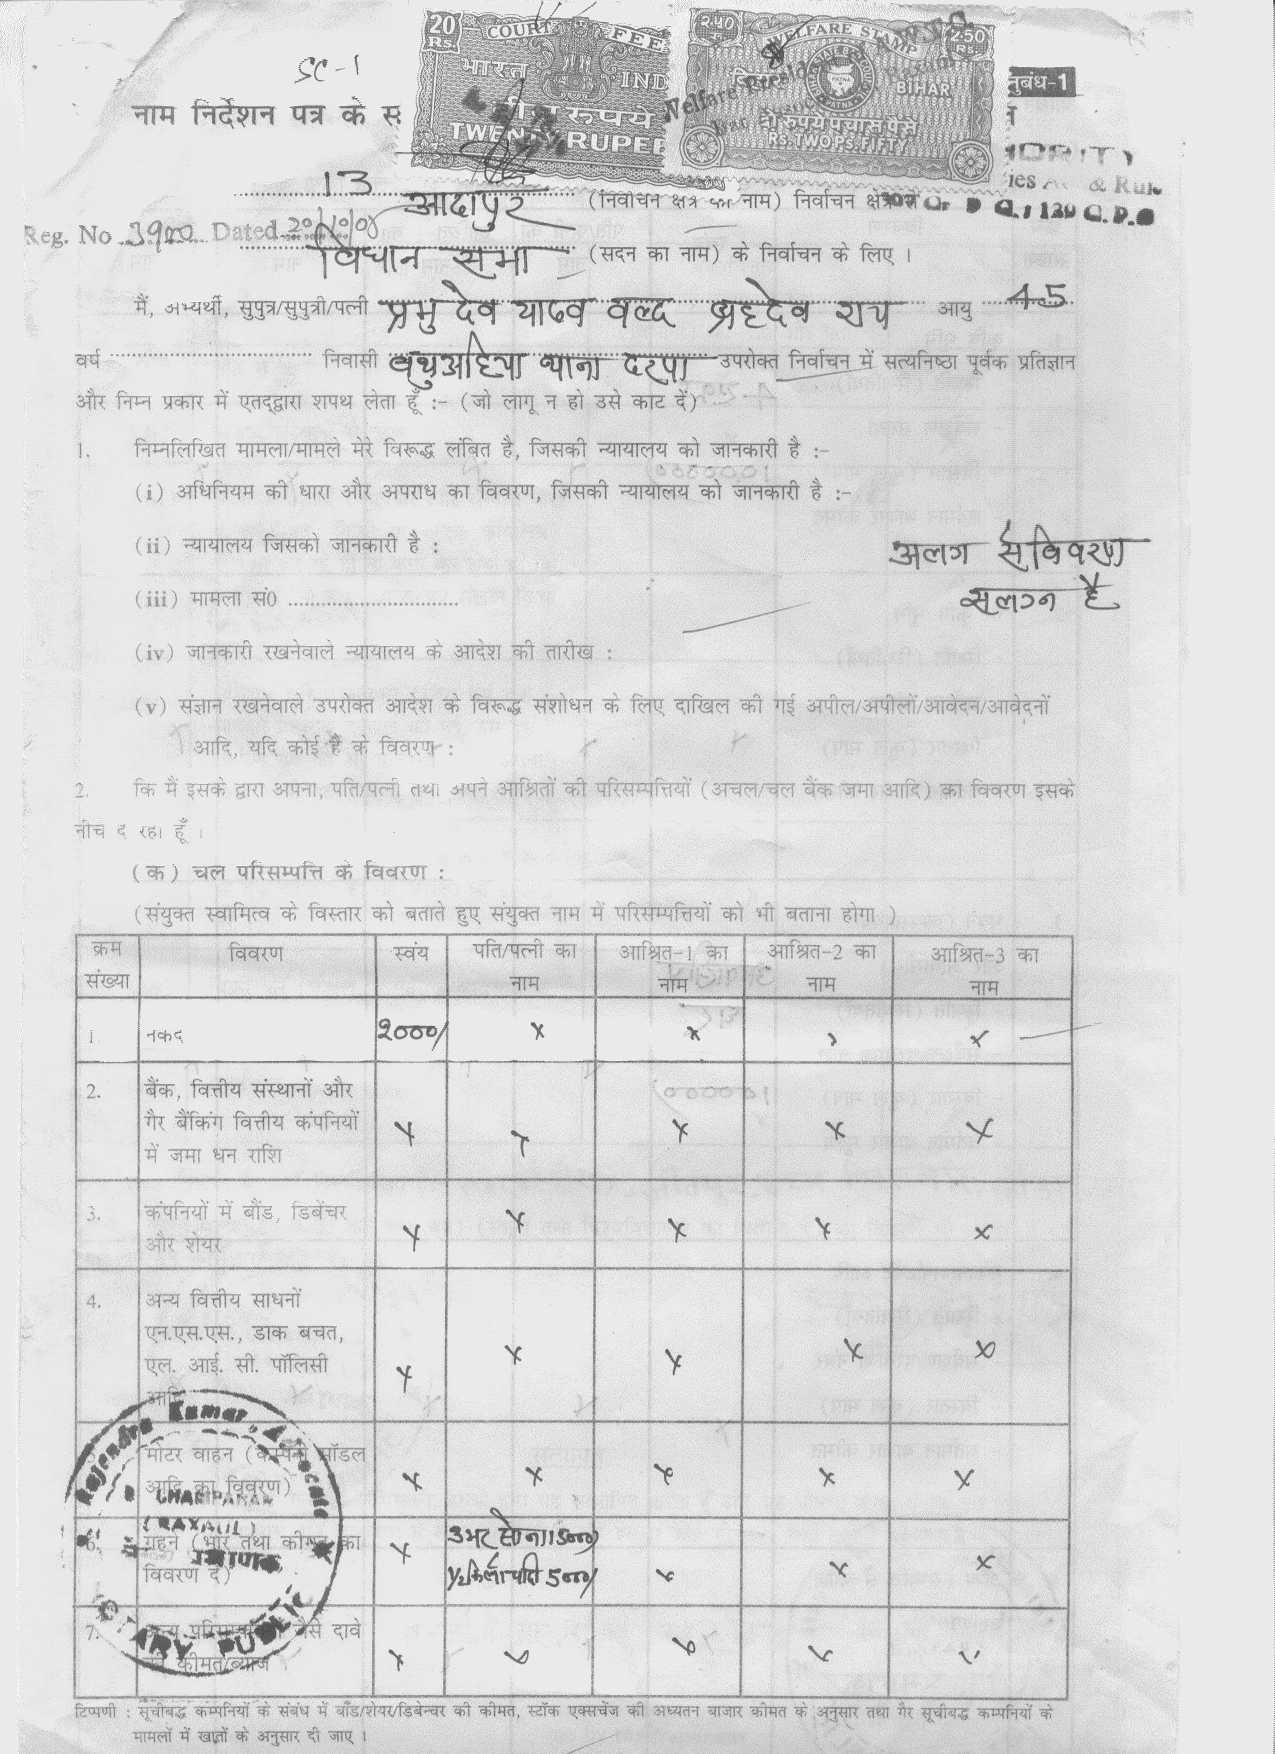 SC-1
20 RS. COURT FEE
भारत IND
TWENTY RUPEE
2.50 RS. WELFARE STAMP
BIHAR
दो रुपये पचास पैसे
RS. TWO PS. FIFTY
नुबंध-1
नाम निर्देशन पत्र के
13 आदापुर (निर्वाचन क्षेत्र का नाम) निर्वाचन क्षेत्र
Reg. No 3900 Dated
विधान सभा (सदन का नाम) के निर्वाचन के लिए ।
मैं, अभ्यर्थी, सुपुत्र/सुपुत्री/पत्नी प्रभु देव यादव वल्द ब्रह्मदेव राय आयु 45
वर्ष निवासी बथुअहिया थाना दरपा उपरोक्त निर्वाचन में सत्यनिष्ठा पूर्वक प्रतिज्ञान
और निम्न प्रकार में एतद्द्वारा शपथ लेता हूँ :- (जो लागू न हो उसे काट दें)
1. निम्नलिखित मामला/मामले मेरे विरूद्ध लंबित है, जिसकी न्यायालय को जानकारी है :-
(i) अधिनियम की धारा और अपराध का विवरण, जिसकी न्यायालय को जानकारी है :-
(ii) न्यायालय जिसको जानकारी है :
अलग से विवरण
(iii) मामला सं0 ..............................
सलग्न है
(iv) जानकारी रखनेवाले न्यायालय के आदेश की तारीख :
(v) संज्ञान रखनेवाले उपरोक्त आदेश के विरूद्ध संशोधन के लिए दाखिल की गई अपील/अपीलों/आवेदन/आवेदनों
आदि, यदि कोई है के विवरण :
2. कि मैं इसके द्वारा अपना, पति/पत्नी तथा अपने आश्रितों की परिसम्पत्तियों (अचल/चल बैंक जमा आदि) का विवरण इसके
नीचे दे रहा हूँ ।
(क) चल परिसम्पत्ति के विवरण :
(संयुक्त स्वामित्व के विस्तार को बताते हुए संयुक्त नाम में परिसम्पत्तियों को भी बताना होगा )
क्रम संख्या विवरण स्वंय पति/पत्नी का नाम आश्रित-1 का नाम आश्रित-2 का नाम आश्रित-3 का नाम
1 नकद 2000/ x x x
2. बैंक, वित्तीय संस्थानों और
गैर बैंकिंग वित्तीय कंपनियों x x x x x
में जमा धन राशि
3. कंपनियों में बौंड, डिबेंचर
और शेयर x x x x x
4. अन्य वित्तीय साधनों
एन.एस.एस., डाक बचत,
एल. आई. सी. पॉलिसी x x x x x
आदि
5. मोटर वाहन (कम्पनी मॉडल
आदि का विवरण) x x x x x
6. गहने (भार तथा कीमत का x 3 भर सोना 15000/
विवरण दें) 1/2 किलो चांदी 5000/ x x x
7. अन्य परिसम्पत्ति जैसे दावे
की कीमत/ब्याज x x x x x
Rajendra Kumar, Advocate
CHAMPARAN
(RAXAUL)
NOTARY PUBLIC
टिप्पणी : सूचीबद्ध कम्पनियों के संबंध में बाँड/शेयर/डिबेन्चर की कीमत, स्टॉक एक्सचेंज की अध्यतन बाजार कीमत के अनुसार तथा गैर सूचीबद्ध कम्पनियों के
मामलों में खातों के अनुसार दी जाए ।